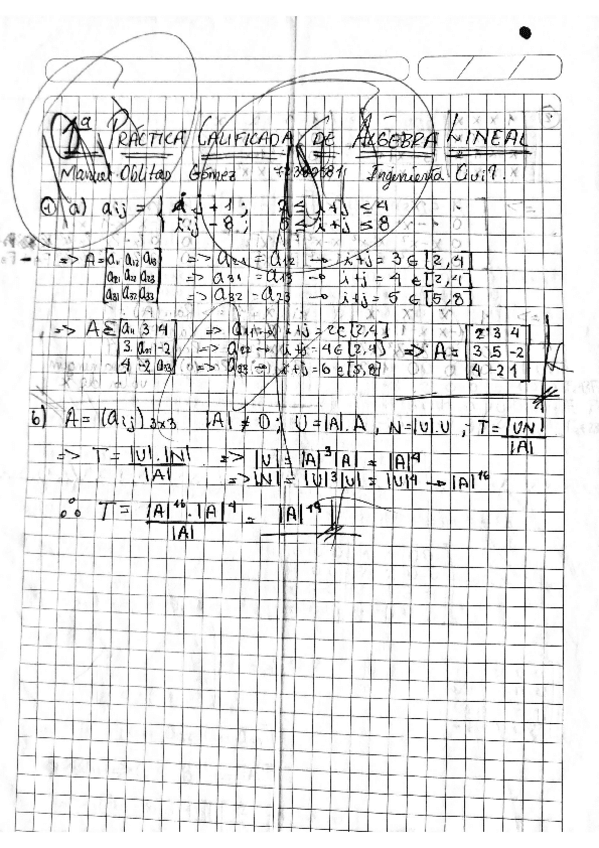 1ª PRÁCTICA CALIFICADA DE ALGEBRA LINEAL
Manuel Oblitas Gómez Ingeniería Civil.
① a) aij = { ij + 1 ; 2 ≤ i+j ≤ 4
ij - 8 ; 5 ≤ i+j ≤ 8
=> A = [a11 a12 a13 => a21 = a12 → i+j = 3 ∈ [2,4]
a21 a22 a23 => a31 = a13 → i+j = 4 ∈ [2,4]
a31 a32 a33] => a32 = a23 → i+j = 5 ∈ [5,8]
=> A = [a11 3 4 => a11 → i+j = 2 ∈ [2,4]
3 a22 -2 => a22 → i+j = 4 ∈ [2,4] => A = [2 3 4
4 -2 a33] => a33 → i+j = 6 ∈ [5,8] 3 5 -2
4 -2 1]
b) A = (aij)3x3 |A| ≠ 0 ; U = |A|.A , N = |U|.U ; T = |UN| / |A|
=> T = |U|.|N| / |A| => |U| = |A|³|A| = |A|⁴
=> |N| = |U|³|U| = |U|⁴ → |A|¹⁶
∴ T = |A|¹⁶.|A|⁴ / |A| = |A|¹⁹